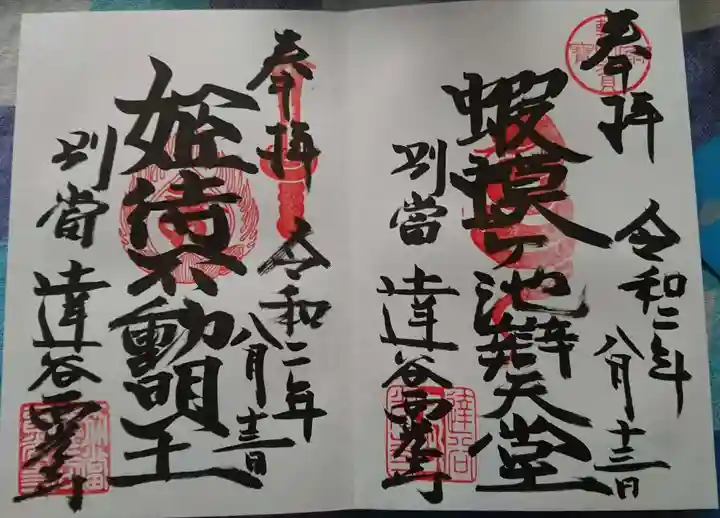 奉拝
令和二年
八月十三日
蝦蟇ヶ池辯天堂
別當
達谷窟
奉拝
令和二年
八月十三日
姫待不動明王
別當
達谷西光寺